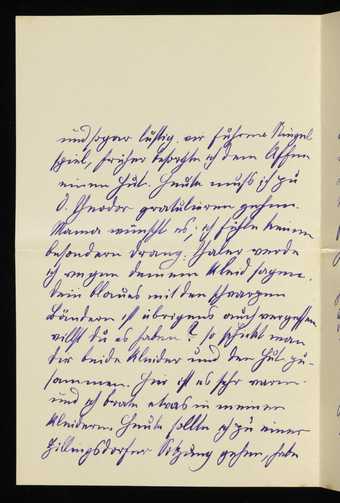 und sogar lustig. wir führen Ringel
spiel, früher besorgte ich dem Affen
einen Hut. Heute muß ich zu
O. Theodor gratulieren gehen.
Mama wünscht es; ich fühle keinen
besondern Drang. Haler werde
ich wegen deinem Kleid sagen.
Dein blaues mit den schwarzen
Bändern ist übrigens auch vergessen
willst du es haben? so schickt man
dir beide Kleider und den Hut zu-
sammen. Hier ist es sehr warm
und ich brate etwas in meinen
Kleidern. Heute sollte ich zu einer
Zillingsdorfer Sitzung gehen, habe